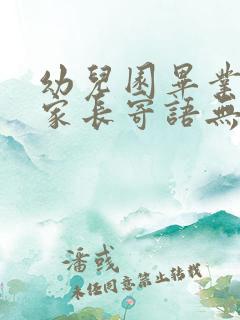 幼兒園畢業
家長寄語無
潘彧
未經同意禁止轉載